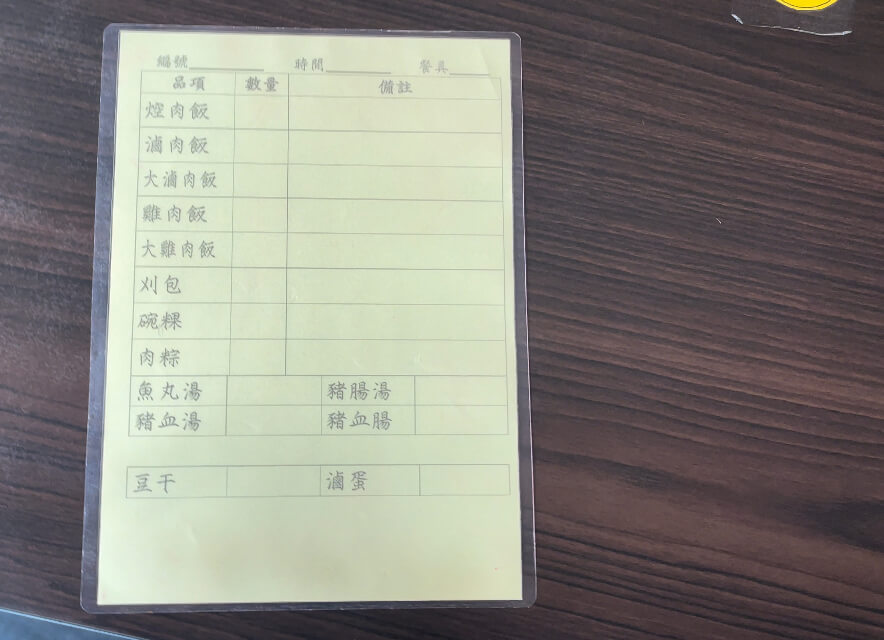 編號 時間 餐具
品項 數量 備註
焢肉飯
滷肉飯
大滷肉飯
雞肉飯
大雞肉飯
刈包
碗粿
肉粽
魚丸湯 豬腸湯
豬血湯 豬血腸
豆干 滷蛋